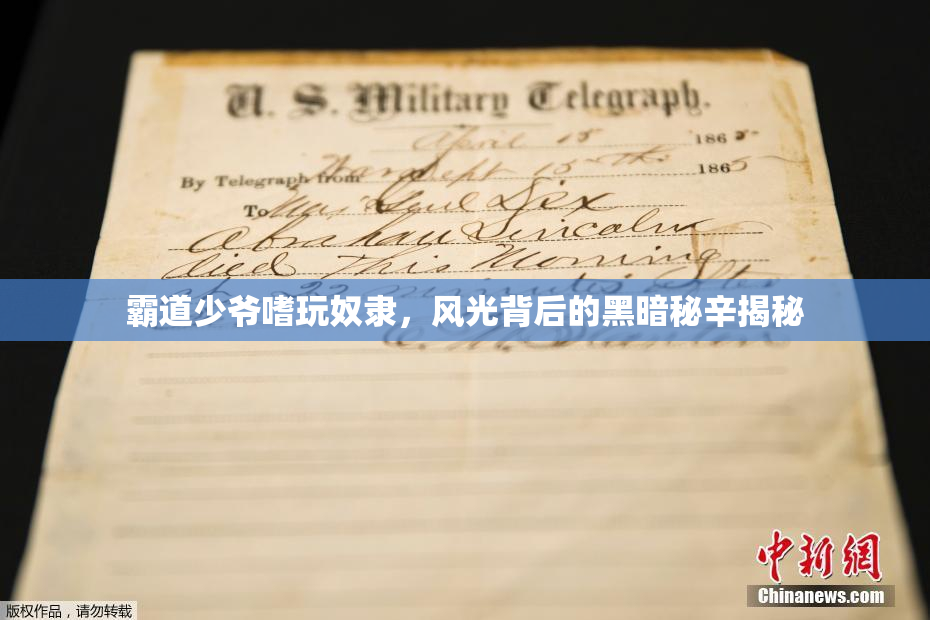 U. S. Military Telegraph.
April 15 1865
By Telegraph from War Dept 15th 1865
To Maj Genl Dix
Abraham Lincoln
died This Morning
at 22 minutes after
霸道少爷嗜玩奴隶，风光背后的黑暗秘辛揭秘
E. M. Stanton
中新网
Chinanews.com
版权作品，请勿转载